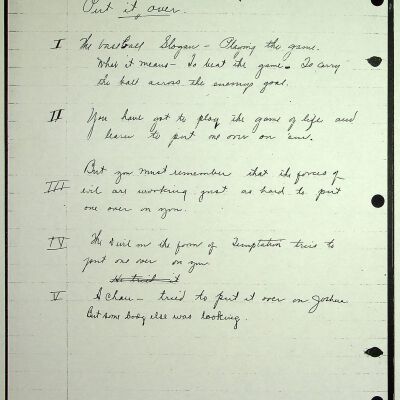 Put it over.
I The baseball Slogan - Playing the game.
What it means - To beat the game. To carry
the ball across the enemys goal.
II You have got to play the game of life and
learn to put one over on 'em.
But you must remember that the forces of
III evil are working just as hard to put
one over on you.
IV The Devil in the form of Temptation tries to
put one over on you
He tried it
V Achan - tried to put it over on Joshua
But some body else was looking.